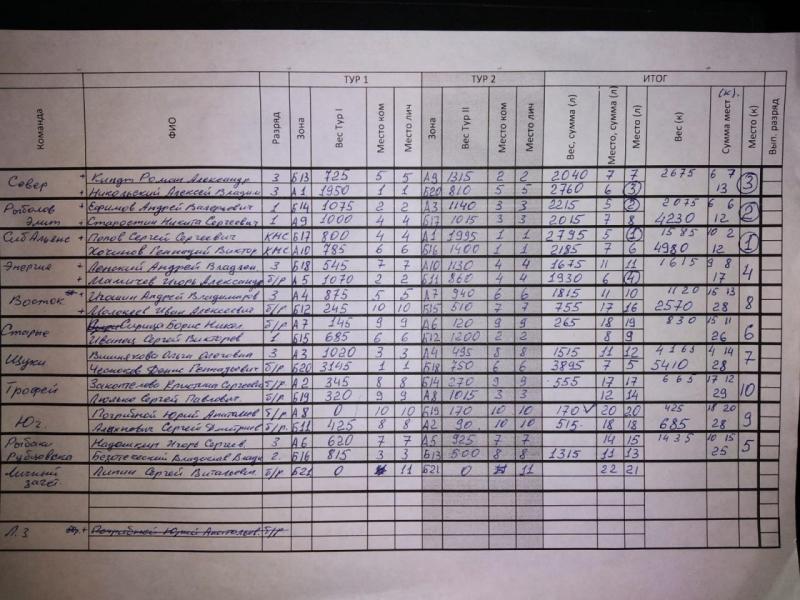 ТУР 1 ТУР 2 ИТОГ
Команда ФИО Разряд Зона Вес Тур I Место ком Место лич Зона Вес Тур II Место ком Место лич Вес, сумма (л) Место, сумма (л) Место (л) Вес (к) Сумма мест (к). Место (к) Вып. разряд
Север + Клидт Роман Александр 3 Б13 725 5 5 А9 1315 2 2 2040 7 7 2675 6 7 3
+ Никольский Алексей Владим 3 А1 1950 1 1 Б20 810 5 5 2760 6 3 13
Рыболов + Ефимов Андрей Валерьевич 1 Б14 1075 2 2 А3 1140 3 3 2215 5 2 2075 6 6 2
Элит + Старостин Никита Сергеевич 1 А9 1000 4 4 Б17 1015 3 3 2015 7 8 4230 12
СибАльянс + Попов Сергей Сергеевич КМС Б17 800 4 4 А1 1995 1 1 2795 5 1 1585 10 2 1
Геннадий Виктор КМС А10 785 6 6 Б16 1400 1 1 2185 7 6 4980 12
Энергия + Ленский Андрей 3 Б18 545 7 7 А10 1130 4 4 1675 11 11 1615 9 8 4
+ Мамичев Игорь Александр б/р А5 1070 2 2 Б11 860 4 4 1930 6 4 17
Восток + Игошин Андрей Владимиров 3 А4 875 5 5 А7 940 6 6 1815 11 10 1120 15 13 8
+ Иван Алексеевич б/р Б12 245 10 10 Б15 510 7 7 755 17 16 2570 28
Старые Борис Никол б/р А7 145 9 9 А6 120 9 9 265 18 19 830 15 11 6
Иванец Сергей Викторов 1 Б15 685 6 6 Б12 1200 2 2 8 9 26
Щуки Вишнякова Ольга 3 А3 1020 3 3 А4 495 8 8 1515 11 12 4165 4 14 7
Чесноков Денис Геннадьевич б/р Б20 3145 1 1 Б18 750 6 6 3895 7 5 5410 28
Трофей Сергеевна б/р А2 345 8 8 Б14 270 9 9 555 17 17 665 17 12 10
Люлько Сергей Павлович. б/р Б19 320 9 9 А8 1015 3 3 12 14 29
Юг. Погрибной Юрий Анатольев б/р А8 0 10 10 Б19 170 10 10 170 20 20 425 18 20 9
Сергей Дмитриев б/р Б11 425 8 8 А2 90 10 10 515 18 18 685 28
Рыбаки Игорь Сергеев. 3 А6 620 7 7 А5 925 7 7 14 15 1435 10 15 5
Рубцовска Владислав Влади 2. Б16 815 3 3 Б13 500 8 8 1315 11 13 25
Личный Липин Сергей Витальевич б/р Б21 0 11 Б21 0 11 22 21
зачёт
Л.З + Погрибной Юрий Анатольев. б/р